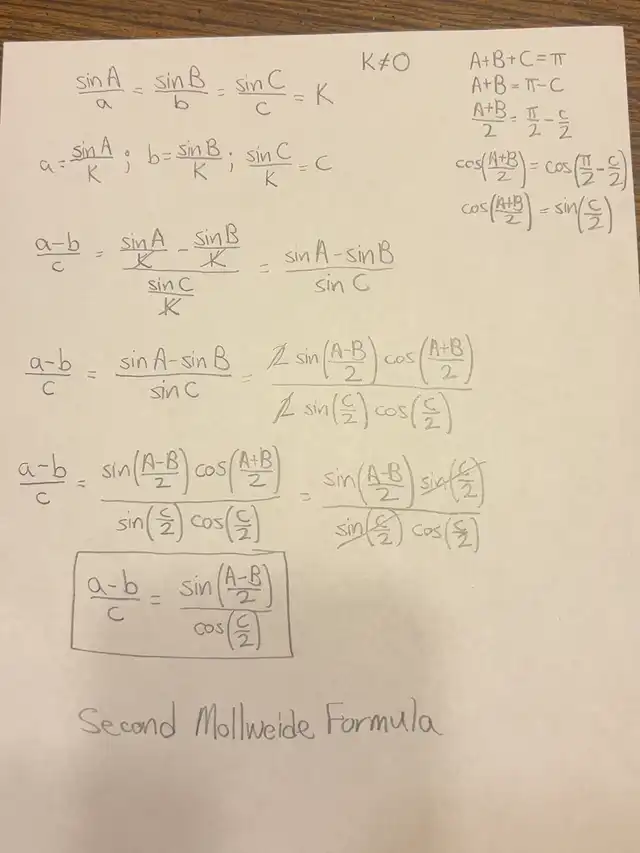 sinA/a = sinB/b = sinC/c = K
K≠0
A+B+C=π
A+B=π-C
(A+B)/2 = π/2 - C/2
cos((A+B)/2) = cos(π/2 - C/2)
cos((A+B)/2) = sin(C/2)
a = sinA/K ; b = sinB/K ; sinC/K = C
(a-b)/c = (sinA/K - sinB/K)/(sinC/K) = (sinA-sinB)/sinC
(a-b)/c = (sinA-sinB)/sinC = (2 sin((A-B)/2) cos((A+B)/2))/(2 sin(C/2) cos(C/2))
(a-b)/c = (sin((A-B)/2) cos((A+B)/2))/(sin(C/2) cos(C/2)) = (sin((A-B)/2) sin(C/2))/(sin(C/2) cos(C/2))
(a-b)/c = sin((A-B)/2)/cos(C/2)
Second Mollweide Formula